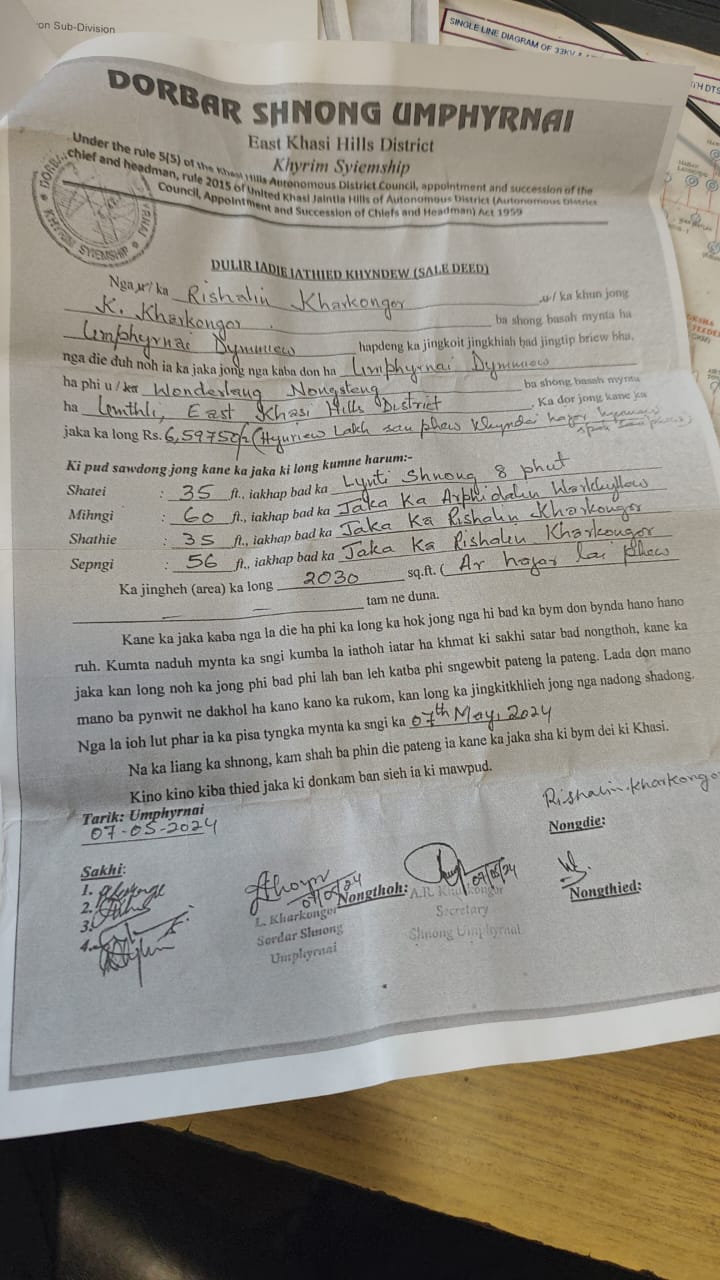 on Sub-Division
SINGLE LINE DIAGRAM OF 33KV &
DORBAR SHNONG UMPHYRNAI
East Khasi Hills District
Khyrim Syiemship
Under the rule 5(5) of the Khasi Hills Autonomous District Council, appointment and succession of the
chief and headman, rule 2015 of United Khasi Jaintia Hills of Autonomous District (Autonomous District
Council, Appointment and Succession of Chiefs and Headman) Act 1959
KHYRIM SYIEMSHIP
DULIR IADIE IATHIED KHYNDEW (SALE DEED)
Nga u/ ka Rishalin Kharkongor u/ ka khun jong
K. Kharkongor ba shong basah mynta ha
Umphyrnai Dymmiew hapdeng ka jingkoit jingkhiah bad jingtip briew bha,
nga die duh noh ia ka jaka jong nga kaba don ha Umphyrnai Dymmiew
ha phi u / ka Wonderlang Nongsteng ba shong basah mynta
ha Umthli, East Khasi Hills District. Ka dor jong kane ka
jaka ka long Rs. 6,59750/- (Hynriew Lakh san phew khyndai hajar
Ki pud sawdong jong kane ka jaka ki long kumne harum:-
Shatei : 35 ft., iakhap bad ka Lynti Shnong 8 phut
Mihngi : 60 ft., iakhap bad ka Jaka Ka Arphidahn
Shathie : 35 ft., iakhap bad ka Jaka Ka Rishalin Kharkongor
Sepngi : 56 ft., iakhap bad ka Jaka Ka Rishalin Kharkongor
Ka jingheh (area) ka long 2030 sq.ft. ( Ar hajar lai phew
tam ne duna.
Kane ka jaka kaba nga la die ha phi ka long ka hok jong nga hi bad ka bym don bynda hano hano
ruh. Kumta naduh mynta ka sngi kumba la iathoh iatar ha khmat ki sakhi satar bad nongthoh, kane ka
jaka kan long noh ka jong phi bad phi lah ban leh katba phi sngewbit pateng la pateng. Lada don mano
mano ba pynwit ne dakhol ha kano kano ka rukom, kan long ka jingkitkhlieh jong nga nadong shadong.
Nga la ioh lut phar ia ka pisa tyngka mynta ka sngi ka 07th May, 2024
Na ka liang ka shnong, kam shah ba phin die pateng ia kane ka jaka sha ki bym dei ki Khasi.
Kino kino kiba thied jaka ki donkam ban sieh ia ki mawpud.
Tarik: Umphyrnai
07-05-2024
Rishalin.Kharkongo
Nongdie:
Sakhi:
1.
2.
3.
4.
07/05/24
Nongthoh:
07/05/24
Nongthied:
L. Kharkongor
Sordar Shnong
Umphyrnai
A.R. Kharkongor
Secretary
Shnong Umphyrnai